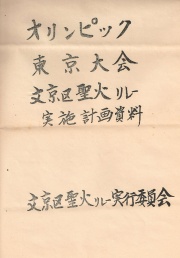 オリンピック
東京大会
文京区聖火リレー
実施計画資料
文京区聖火リレー実行委員会